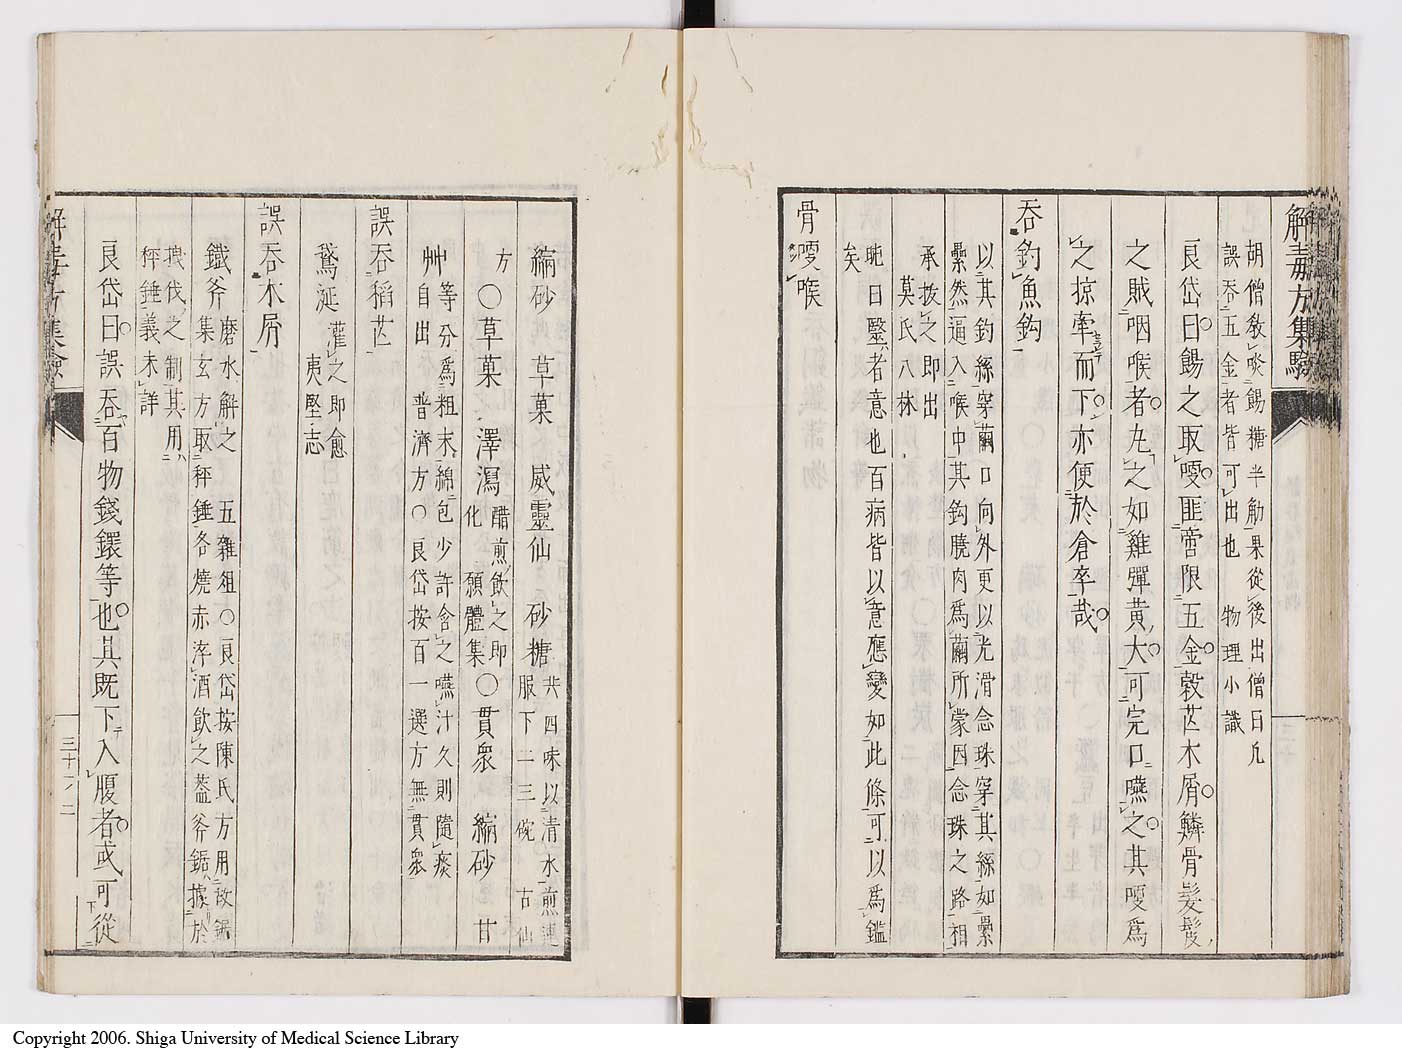 解毒方集驗
胡僧敎啖餳糖半觔果從後出僧曰凡
誤吞五金者皆可出也 物理小識
艮岱曰餳之取嗄匪啻限五金穀芒木屑鱗骨髮髮
之賊咽喉者丸之如雞彈黃大可完口嚥之其嗄爲
之掠牽而下亦便於倉卒哉
吞釣魚鈎
以其鈞絲穿繭口向外更以光滑念珠穿其絲如纍
纍然逼入喉中其鈎脫肉爲繭所蒙因念珠之路相
承拔之即出
莫氏八林
㫾曰毉者意也百病皆以意應變如此條可以爲鑑
矣
骨嗄喉
縮砂 草菓 威靈仙 砂糖 共四味以清水煎連
服下二三碗 古仙
方 ○草菓 澤瀉 醋煎飲之即
化 頤體集 ○貫衆 縮砂 甘
艸 等分爲粗末綿包少許含之嚥汁久則隨痰
自出 普濟方○艮岱按百一選方無貫衆
誤吞稻芒
鵞涎 灌之即愈
夷堅志
誤吞木屑
鐵斧 磨水解之 五雜俎○艮岱按陳氏方用故鋸
集玄方取秤錘各燒赤淬酒飮之葢斧鋸據於
執伐之制其用
秤錘義未詳
艮岱曰誤吞百物錢鐶等也其既下入腹者或可從
解毒方集驗
三十二
Copyright 2006. Shiga University of Medical Science Library